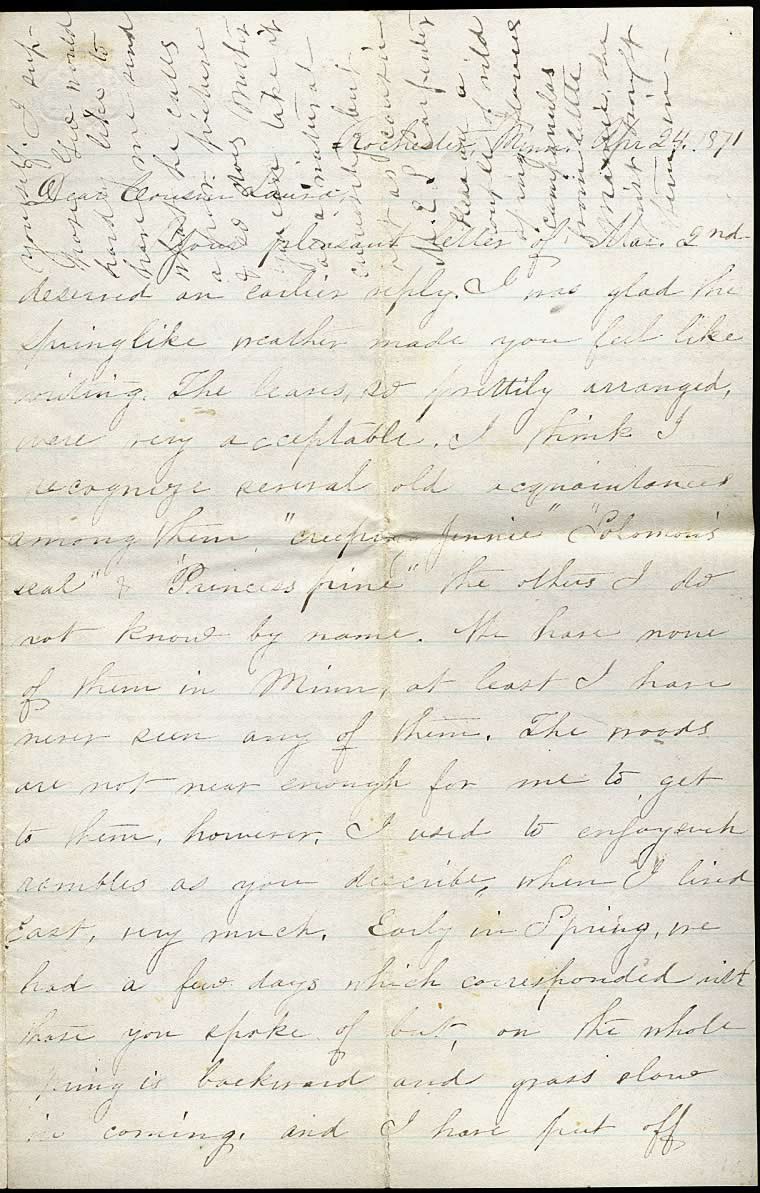 Rochester, Minn. Apr 24. 1871
Dear Cousin Laura,
Your pleasant letter of Mar. 2nd
deserved an earlier reply. I was glad the
Springlike weather made you feel like
writing. The leaves, so prettily arranged,
were very acceptable. I think I
recognize several old acquaintances
among them, "creeping Jennie" "Solomon's
seal" & "Princess pine" the others I do
not know by name. We have none
of them in Minn, at least I have
never seen any of them. The woods
are not near enough for me to get
to them, however. I used to enjoy such
rambles as you describe, when I lived
East, very much. Early in Spring, we
had a few days which corresponded with
those you spoke of but, on the whole
Spring is backward and grass slow
in coming. and I have put off
yourself. I sup-
pose you would
hardly like to
have me send
what he calls
a poor picture
& so does Mother
as a natural
curiosity but
not as cousin
M. E. P. Carpenter
Here are a
couple of wild
flowers
campanulas
from
just brought
them in-